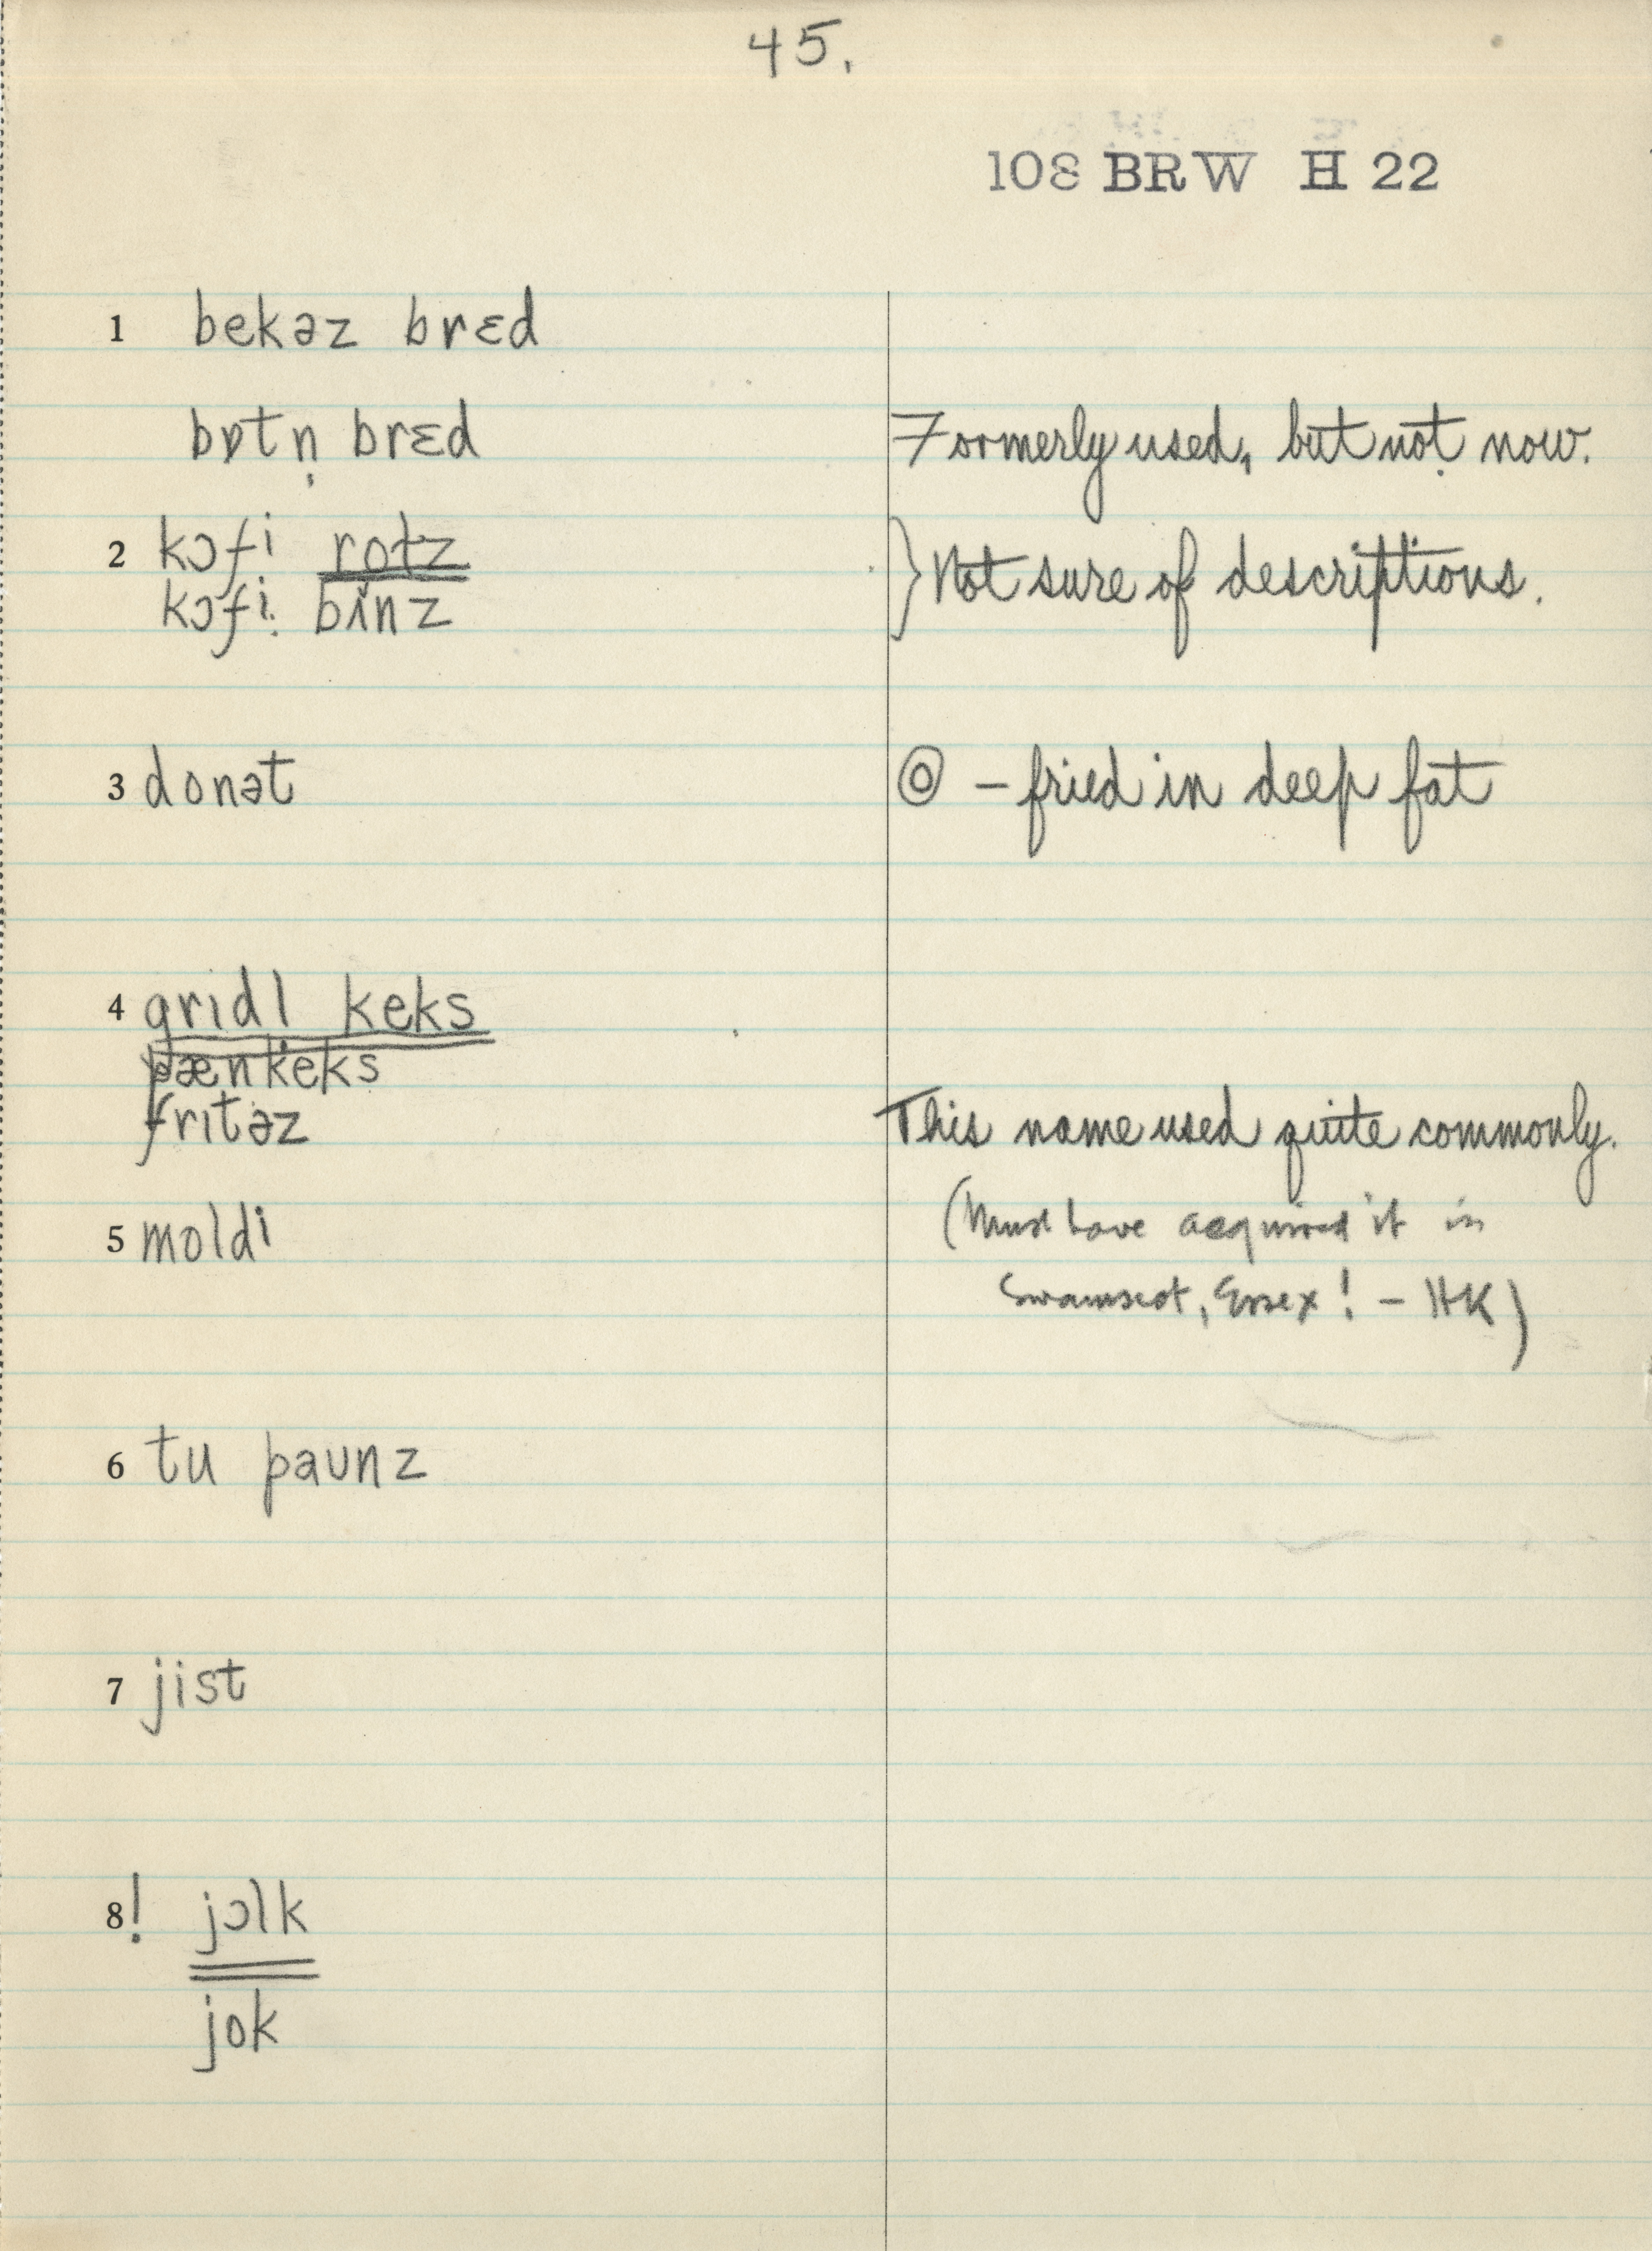 45.
108 BRW H 22
1 bekəz brɛd
bɒtn̩ brɛd Formerly used, but not now.
2 kɔfi rolz
kɔfi binz } Not sure of descriptions.
3 donət ◎ – fried in deep fat
4 grɪdl keks
pænkeks
frɪtəz This name used quite commonly.
(Must have acquired it in
5 moldi
Swamscot, Essex! – HK)
6 tu paunz
7 jist
8! jɔlk
jok